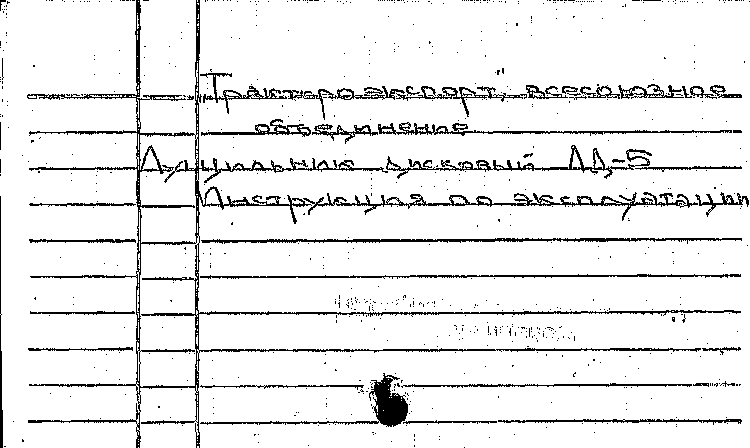 „Трактороэкспорт", всесоюзное
объединение
Лущильник дисковый ЛД-5
Инструкция по эксплуатации